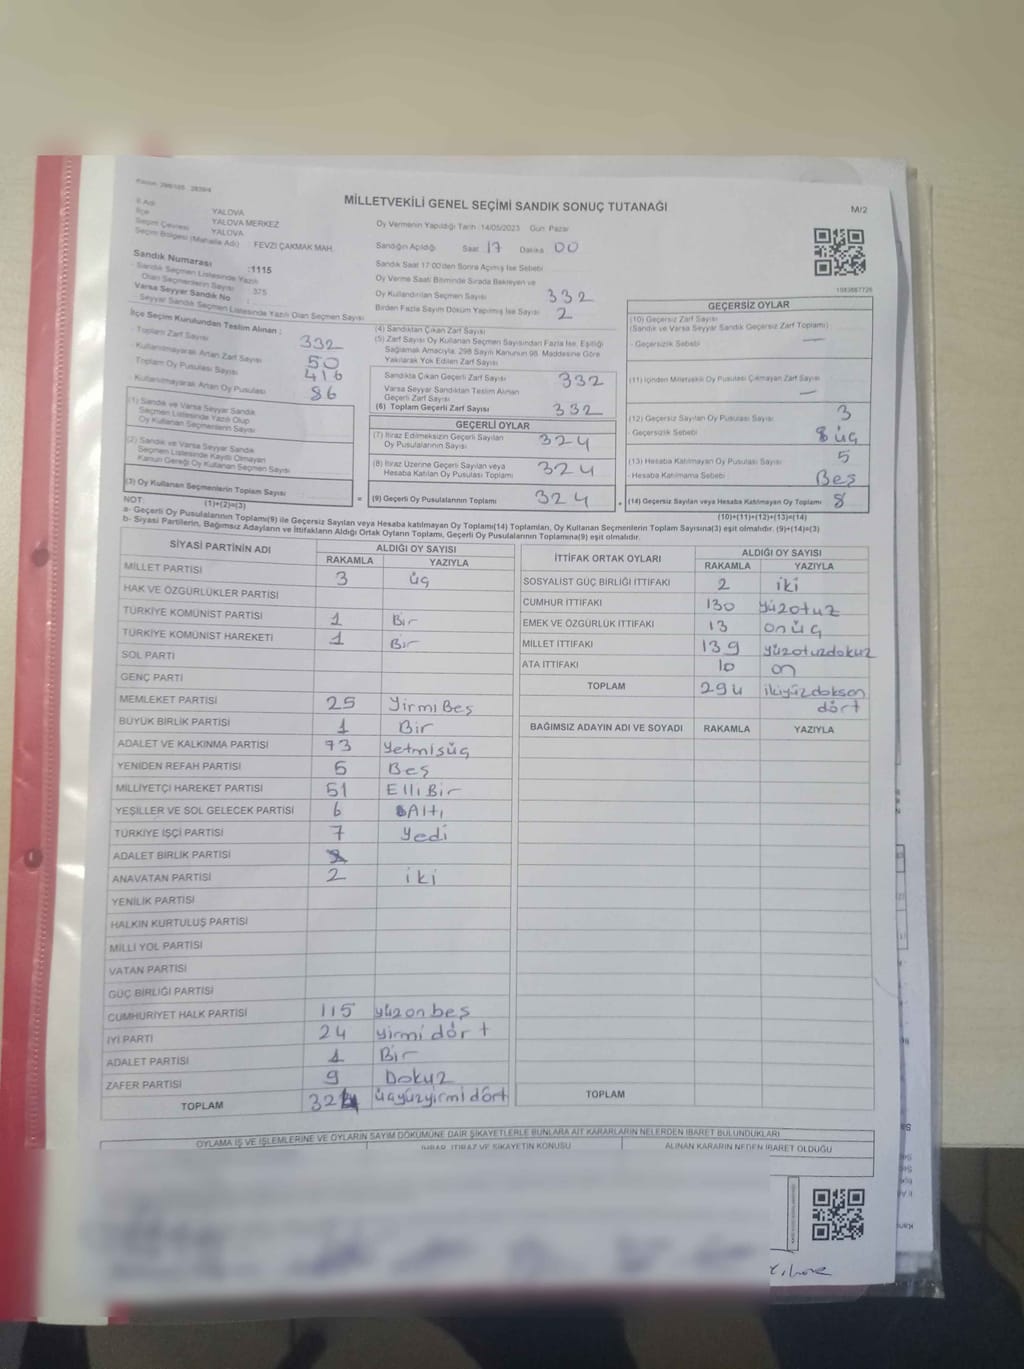 MİLLETVEKİLİ GENEL SEÇİMİ SANDIK SONUÇ TUTANAĞI
M/2
İl Adı YALOVA
İlçe YALOVA MERKEZ
Seçim Çevresi YALOVA
Seçim Bölgesi (Mahalle Adı) FEVZİ ÇAKMAK MAH.
Sandık Numarası :1115
Sandık Seçmen Listesinde Yazılı
Olan Seçmenlerin Sayısı : 375
Varsa Seyyar Sandık No :
Seyyar Sandık Seçmen Listesinde Yazılı Olan Seçmen Sayısı
Oy Vermenin Yapıldığı Tarih :14/05/2023 Gün: Pazar
Sandığın Açıldığı Saat 17 Dakika 00
Sandık Saat 17:00'den Sonra Açılmış İse Sebebi
Oy Verme Saati Bitiminde Sırada Bekleyen ve
Oy Kullandırılan Seçmen Sayısı 332
Birden Fazla Sayım Döküm Yapılmış İse Sayısı 2
1083667726
İlçe Seçim Kurulundan Teslim Alınan :
- Toplam Zarf Sayısı 332
- Kullanılmayarak Artan Zarf Sayısı 50
Toplam Oy Pusulası Sayısı 416
- Kullanılmayarak Artan Oy Pusulası 86
(1) Sandık ve Varsa Seyyar Sandık
Seçmen Listesinde Yazılı Olup
Oy Kullanan Seçmen Sayısı
(2) Sandık ve Varsa Seyyar Sandık
Seçmen Listesinde Kayıtlı Olmayan
Kanun Gereği Oy Kullanan Seçmen Sayısı
(3) Oy Kullanan Seçmenlerin Toplam Sayısı
(1)+(2)=(3)
(4) Sandıktan Çıkan Zarf Sayısı
(5) Zarf Sayısı Oy Kullanan Seçmen Sayısından Fazla İse, Eşitliği
Sağlamak Amacıyla; 298 Sayılı Kanunun 98. Maddesine Göre
Yakılarak Yok Edilen Zarf Sayısı
Sandıkta Çıkan Geçerli Zarf Sayısı 332
Varsa Seyyar Sandıktan Teslim Alınan
Geçerli Zarf Sayısı
(6) Toplam Geçerli Zarf Sayısı 332
GEÇERLİ OYLAR
(7) İtiraz Edilmeksizin Geçerli Sayılan
Oy Pusulalarının Sayısı 324
(8) İtiraz Üzerine Geçerli Sayılan veya
Hesaba Katılan Oy Pusulası Toplamı 324
= (9) Geçerli Oy Pusulalarının Toplamı 324
GEÇERSİZ OYLAR
(10) Geçersiz Zarf Sayısı
(Sandık ve Varsa Seyyar Sandık Geçersiz Zarf Toplamı)
- Geçersizlik Sebebi —
(11) İçinden Milletvekili Oy Pusulası Çıkmayan Zarf Sayısı —
(12) Geçersiz Sayılan Oy Pusulası Sayısı 3
- Geçersizlik Sebebi üç
(13) Hesaba Katılmayan Oy Pusulası Sayısı 5
- Hesaba Katılmama Sebebi Beş
+ (14) Geçersiz Sayılan veya Hesaba Katılmayan Oy Toplamı 8
(10)+(11)+(12)+(13)=(14)
NOT:
a- Geçerli Oy Pusulalarının Toplamı(9) ile Geçersiz Sayılan veya Hesaba katılmayan Oy Toplamı(14) Toplamları, Oy Kullanan Seçmenlerin Toplam Sayısına(3) eşit olmalıdır. (9)+(14)=(3)
b- Siyasi Partilerin, Bağımsız Adayların ve İttifakların Aldığı Ortak Oyların Toplamı, Geçerli Oy Pusulalarının Toplamına(9) eşit olmalıdır.
SİYASİ PARTİNİN ADI ALDIĞI OY SAYISI
RAKAMLA YAZIYLA
MİLLET PARTİSİ 3 üç
HAK VE ÖZGÜRLÜKLER PARTİSİ
TÜRKİYE KOMÜNİST PARTİSİ 1 Bir
TÜRKİYE KOMÜNİST HAREKETİ 1 Bir
SOL PARTİ
GENÇ PARTİ
MEMLEKET PARTİSİ 25 Yirmi Beş
BÜYÜK BİRLİK PARTİSİ 1 Bir
ADALET VE KALKINMA PARTİSİ 73 Yetmişüç
YENİDEN REFAH PARTİSİ 5 Beş
MİLLİYETÇİ HAREKET PARTİSİ 51 Elli Bir
YEŞİLLER VE SOL GELECEK PARTİSİ 6 Altı
TÜRKİYE İŞÇİ PARTİSİ 7 Yedi
ADALET BİRLİK PARTİSİ
ANAVATAN PARTİSİ 2 iki
YENİLİK PARTİSİ
HALKIN KURTULUŞ PARTİSİ
MİLLİ YOL PARTİSİ
VATAN PARTİSİ
GÜÇ BİRLİĞİ PARTİSİ
CUMHURİYET HALK PARTİSİ 115 yüzonbeş
İYİ PARTİ 24 yirmi dört
ADALET PARTİSİ 1 Bir
ZAFER PARTİSİ 9 Dokuz
TOPLAM 324 üçyüzyirmidört
İTTİFAK ORTAK OYLARI ALDIĞI OY SAYISI
RAKAMLA YAZIYLA
SOSYALİST GÜÇ BİRLİĞİ İTTİFAKI 2 iki
CUMHUR İTTİFAKI 130 yüzotuz
EMEK VE ÖZGÜRLÜK İTTİFAKI 13 onüç
MİLLET İTTİFAKI 139 yüzotuzdokuz
ATA İTTİFAKI 10 on
TOPLAM 294 ikiyüzdoksen
dört
BAĞIMSIZ ADAYIN ADI VE SOYADI RAKAMLA YAZIYLA
TOPLAM
OYLAMA İŞ VE İŞLEMLERİNE VE OYLARIN SAYIM DÖKÜMÜNE DAİR ŞİKAYETLERLE BUNLARA AİT KARARLARIN NELERDEN İBARET BULUNDUKLARI
İHBAR, İTİRAZ VE ŞİKAYETİN KONUSU ALINAN KARARIN NEDEN İBARET OLDUĞU